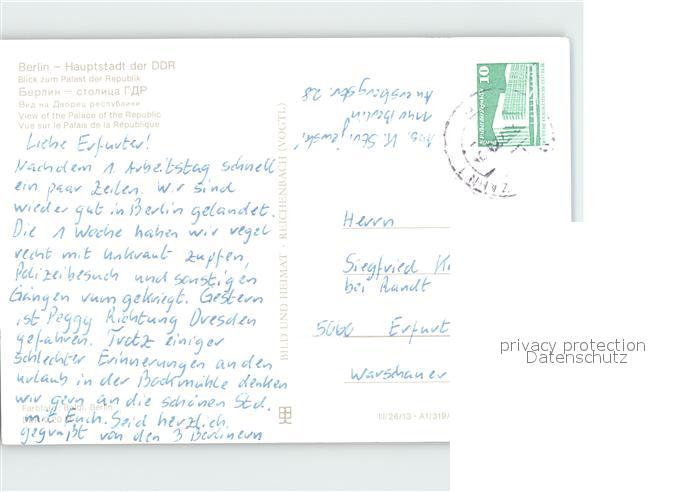 Berlin – Hauptstadt der DDR
Blick zum Palast der Republik
Берлин – столица ГДР
Вид на Дворец республики
View of the Palace of the Republic
Vue sur le Palais de la République
Liebe Erfurter!
Nachdem 1. Arbeitstag schnell
ein paar Zeilen. Wir sind
wieder gut in Berlin gelandet.
Die 1 Woche haben wir regel
recht mit Unkraut zupfen,
Polizeibesuch und sonstigen
Gängen rumgekriegt. Gestern
ist Peggy Richtung Dresden
gefahren. Trotz einiger
schlechter Erinnerungen an den
Urlaub in der Bockmühle denken
wir gern an die schönen Std.
mit Euch. Seid herzlich
gegrüßt von den 3 Berlinern
BILD UND HEIMAT · REICHENBACH (VOGTL)
Abs. K.
1100 Berlin
28
10
Herrn
Siegfried
bei Randt
5060 Erfurt
Warschauer
III/26/13 · A1/319/
privacy protection
Datenschutz